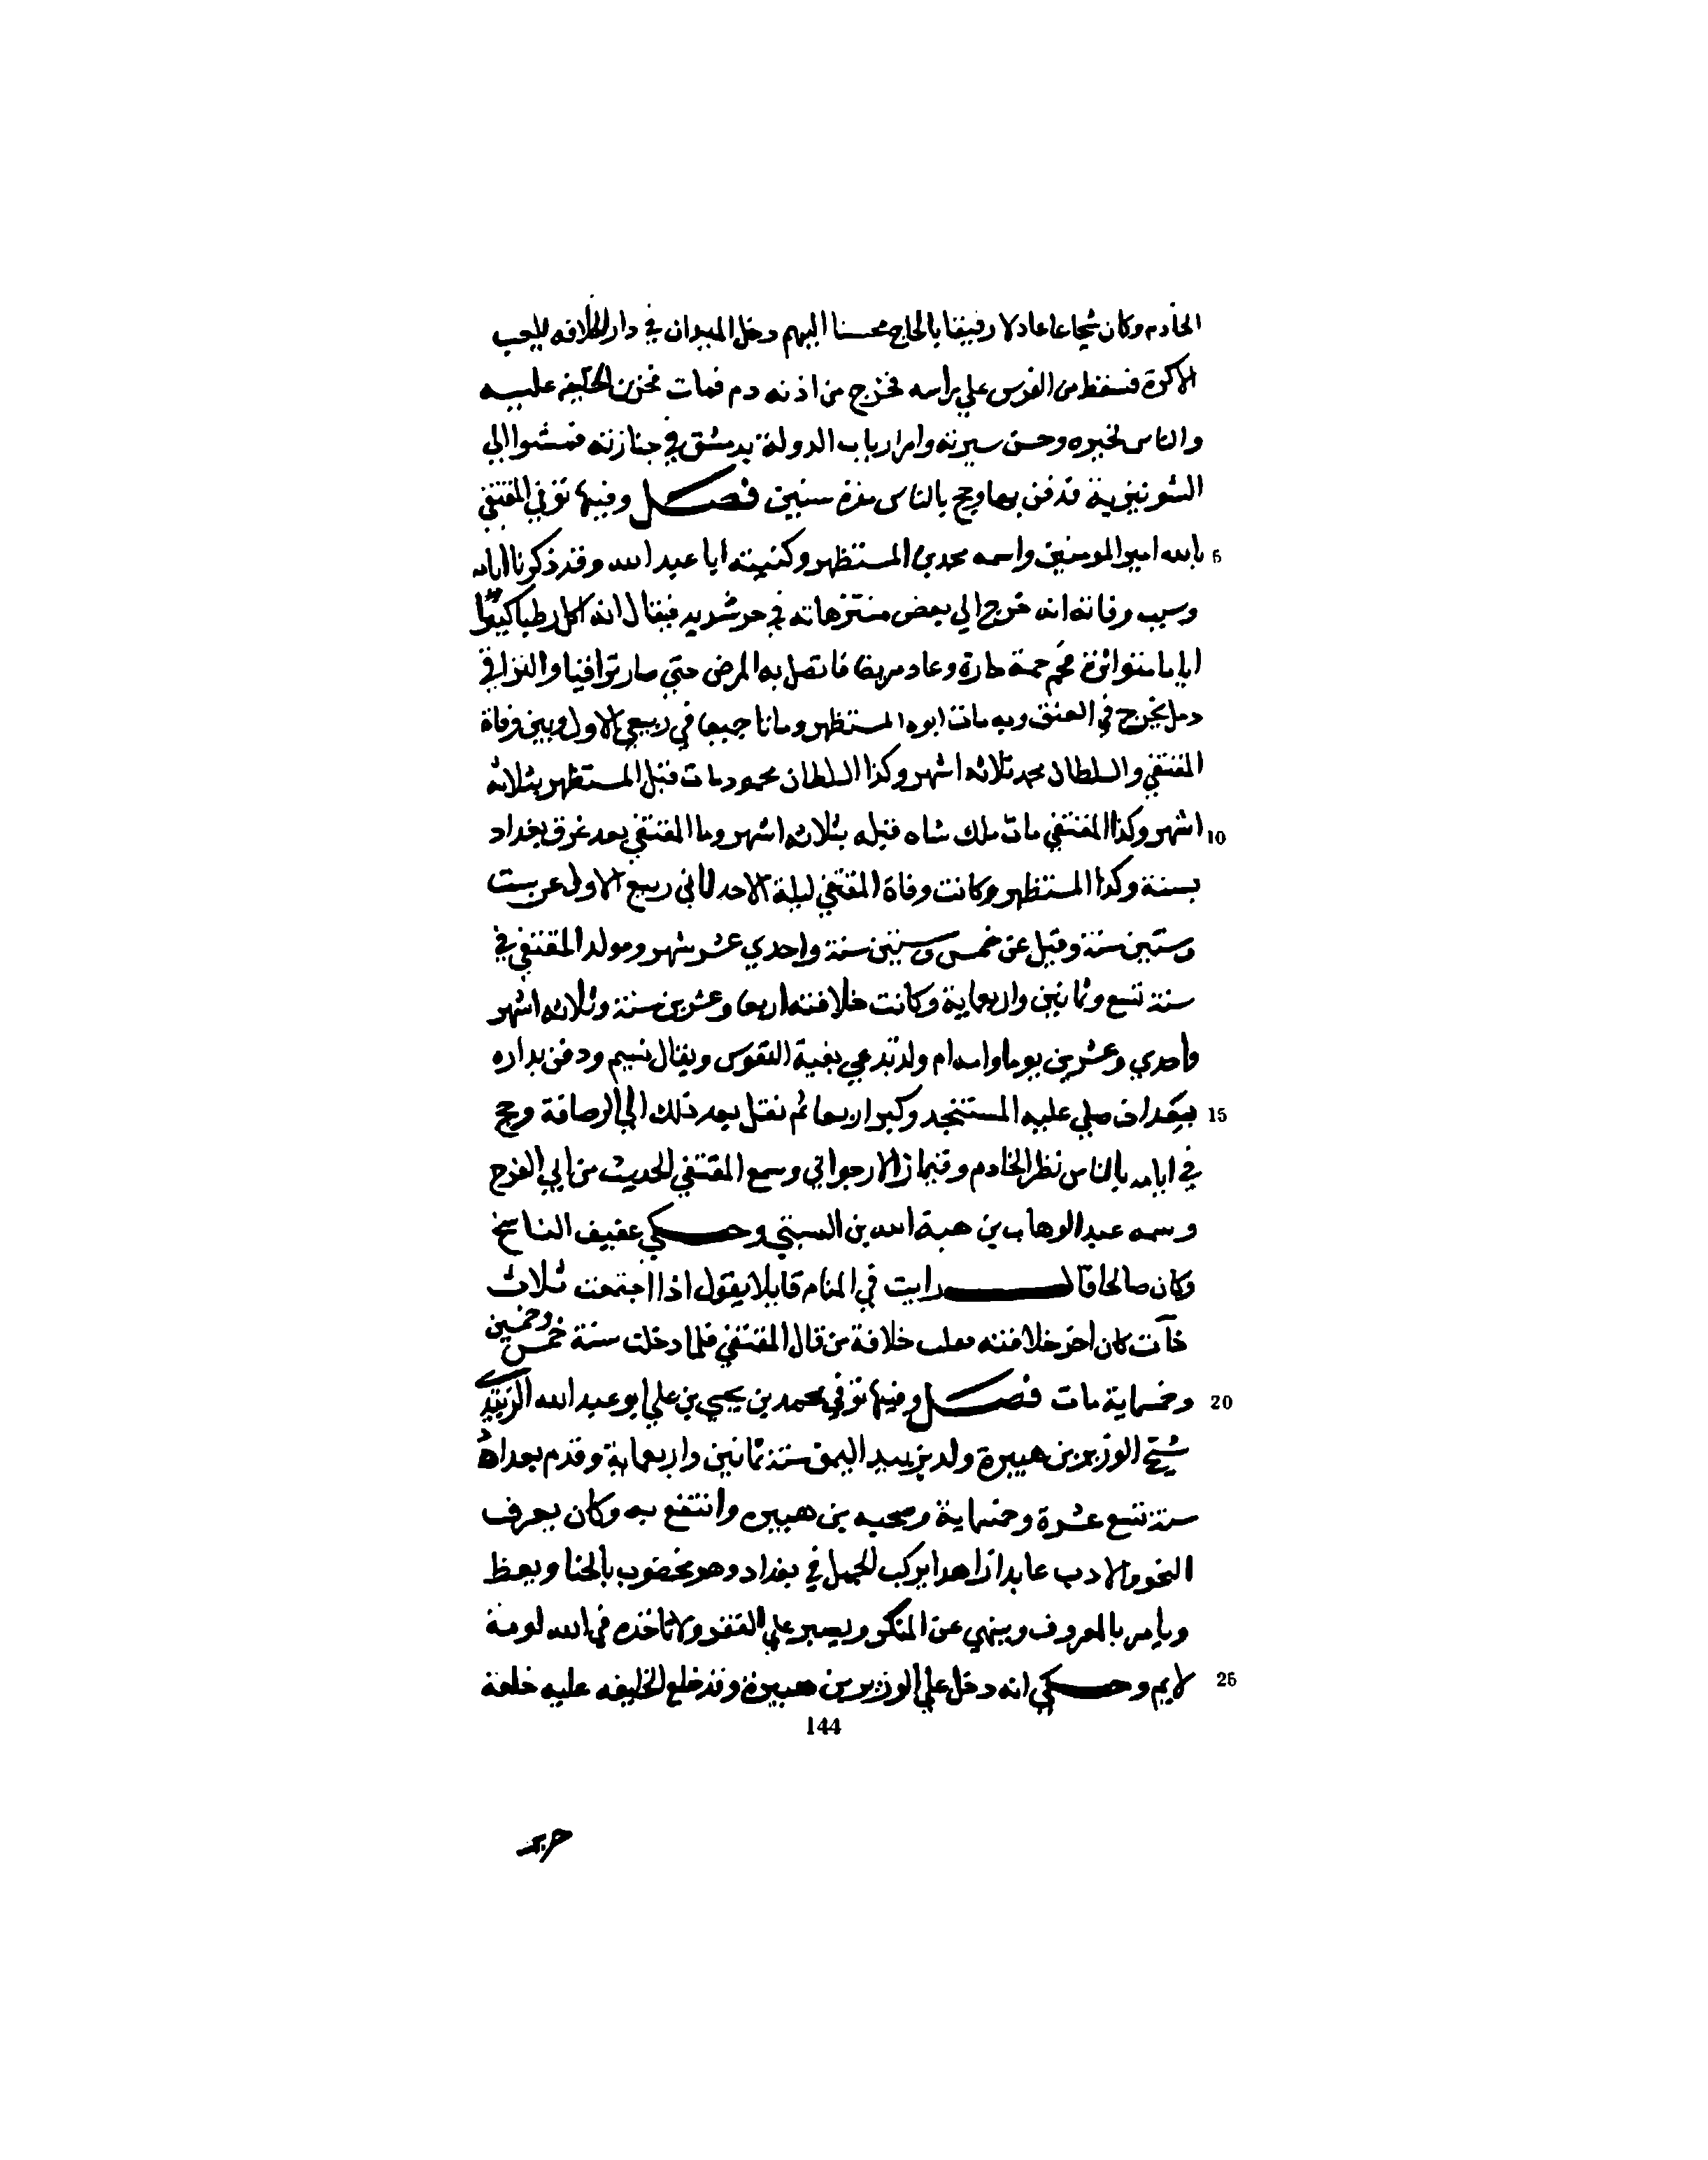 الخادم وكان شجاعا عادلا رفيقا بالحاج محسنا اليهم دخل الميدان في دار الخلافه يلعب
الاكرة فسقط من الفرس علي راسه فخرج من اذنه دم فمات فحزن الخليفه عليه
والناس لخيره وحسن سيرته وامر ارباب الدولة بدمشق في جنازته فمشوا الي
الشونيزية فدفن بها وحج بالناس سنين فصل وفيها توفي المقتفي
5 بالله امير المومنين واسمه محمد بن المستظهر وكنيته ابا عبد الله وقد ذكرنا ايامه
وسبب وفاته انه خرج الي بعض منتزهاته في حر شديد فيقال انه اكل رطبا كثيرا
اياما متواترة فحم حمة حارة وعاد مريضا فاتصل به المرض حتي صار تراقيا والتراقي
دمل يخرج في العنق وبه مات ابوه المستظهر وماتا جميعا في ربيع الاول وبين وفاة
المقتفي والسلطان محمد ثلاثه اشهر وكذا السلطان محمود مات قبل المستظهر بثلاثه
10 اشهر وكذا المقتفي مات ملك شاه قبله بثلاثه اشهر وما المقتفي بعد غرق بغداد
بسنة وكذا المستظهر وكانت وفاة المقتفي ليلة الاحد ثاني ربيع الاول عن ست
وستين سنة وقيل عن خمس وستين سنة واحدي عشر شهر ومولد المقتفي في
سنة تسع وثمانين واربعماية وكانت خلافته اربعا وعشرين سنة وثلاثه اشهر
واحدي وعشرين يوما وامه ام ولد تدعي بغية النفوس ويقال نسيم ودفن بداره
15 صلي عليه المستنجد وكبر اربعا ثم نقل بعد ذلك الي الرصافة وحج
في ايامه بالناس نظر الخادم وقيماز الارجواني وسمع المقتفي الحديث من ابي الفرج
وسمه عبد الوهاب بن هبة الله بن السبتي وحكي عفيف الناسخ
وكان صالحا قال رايت في المنام قايلا يقول اذا اجتمعت ثلاث
خآت كان اخر خلافته خلافة من قال المقتفي فلما دخلت سنة خمس وخمسين
20 وخمسماية مات فصل وفيها توفي محمد بن يحيي بن علي ابو عبد الله الزبيدي
شيخ الوزير بن هبيرة ولد بزبيد اليمن سنة ثمانين واربعماية وقدم بغداد
سنة تسع عشرة وخمسماية وصحبه بن هبيره وانتفع به وكان يعرف
النحو والادب عابدا زاهدا يركب الجمل في بغداد وهو مخضوب بالحنا ويعظ
ويامر بالمعروف وينهي عن المنكر ويصبر علي الفقر ولا تاخذه في الله لومة
25 لايم وحكي انه دخل علي الوزير بن هبيرة وقد خلع الخليفه عليه خلعة
144